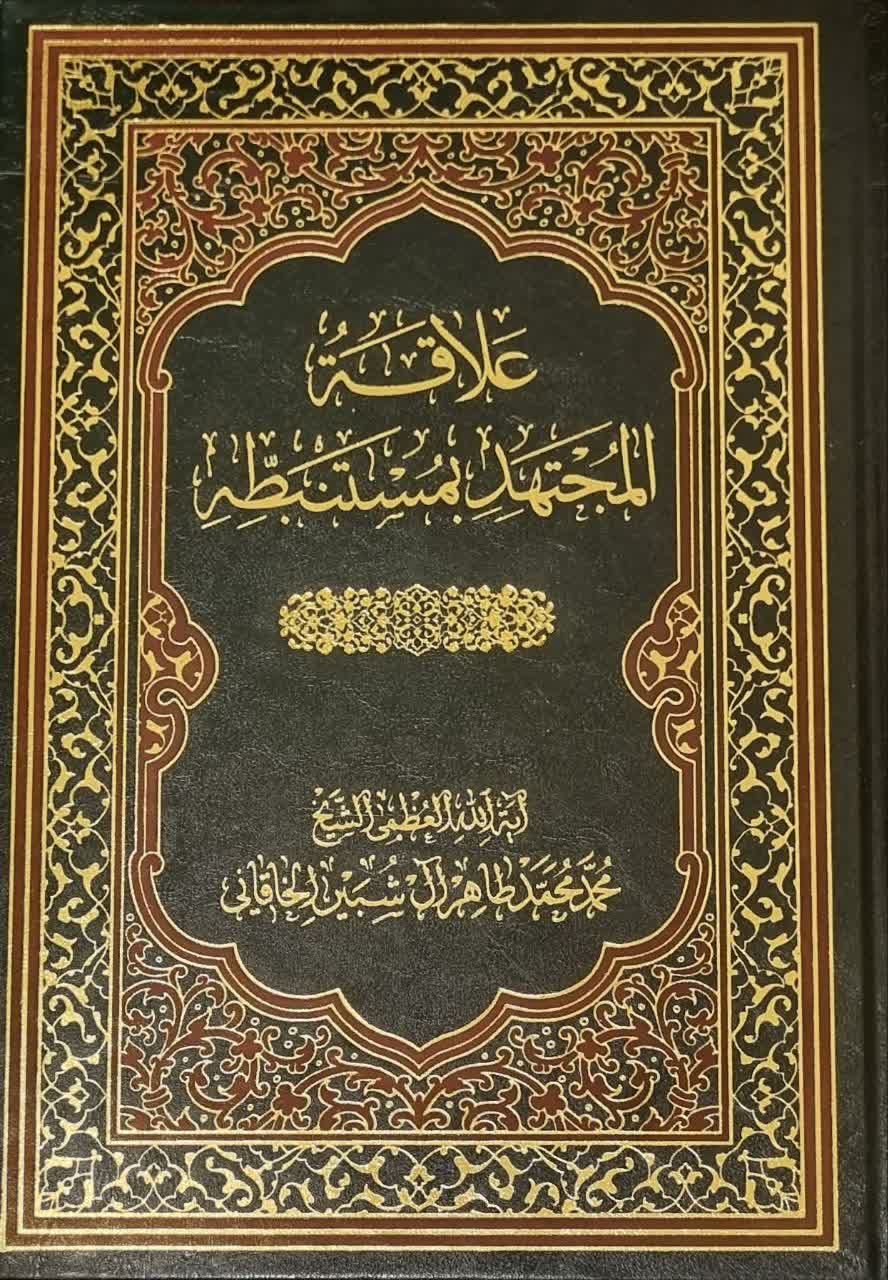 عَلَاقَةُ
المُجْتَهَدِ بمُسْتَنْبَطِّهِ
آية الله العُظمى الشَّيخ
مُحمَّد مُحَمَّد طَاهِر آل شُبَيْر الخَاقاني